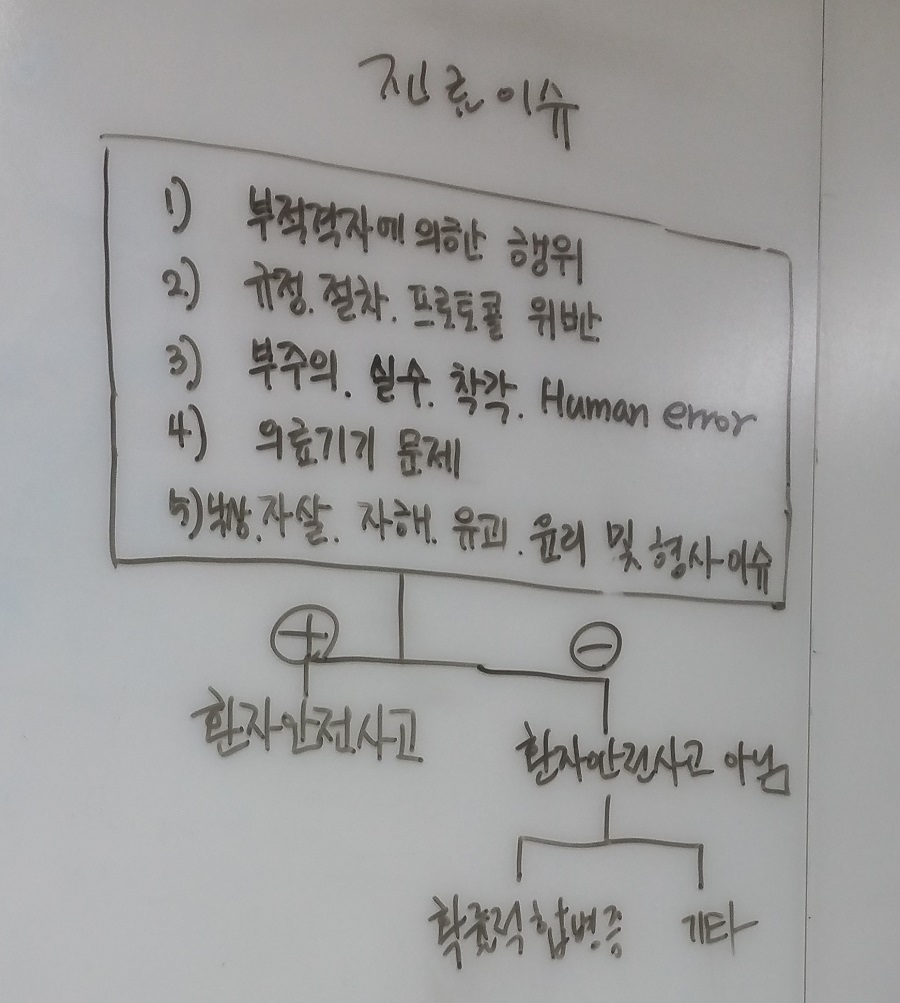 진료이슈
1) 부적격자에 의한 행위
2) 규정. 절차. 프로토콜 위반
3) 부주의. 실수. 착각. Human error
4) 의료기기 문제
5) 낙상. 자살. 자해. 유괴. 윤리 및 형사이슈
⊕ ⊖
환자안전사고
환자안전사고 아님
확률적 합병증 기타